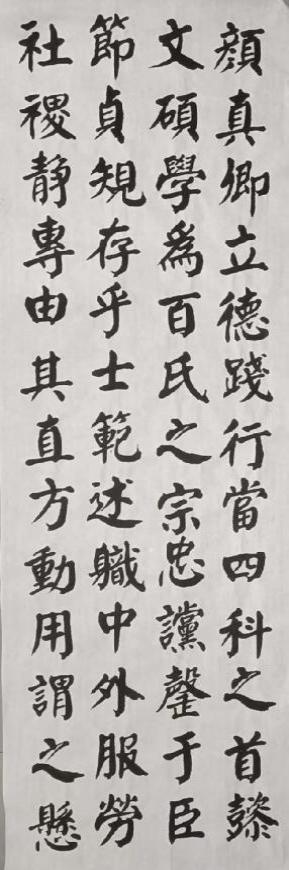 顔真卿立德踐行當四科之首懿
文碩學爲百氏之宗忠讜罄于臣
節貞規存乎士範述職中外服勞
社稷靜專由其直方動用謂之懸